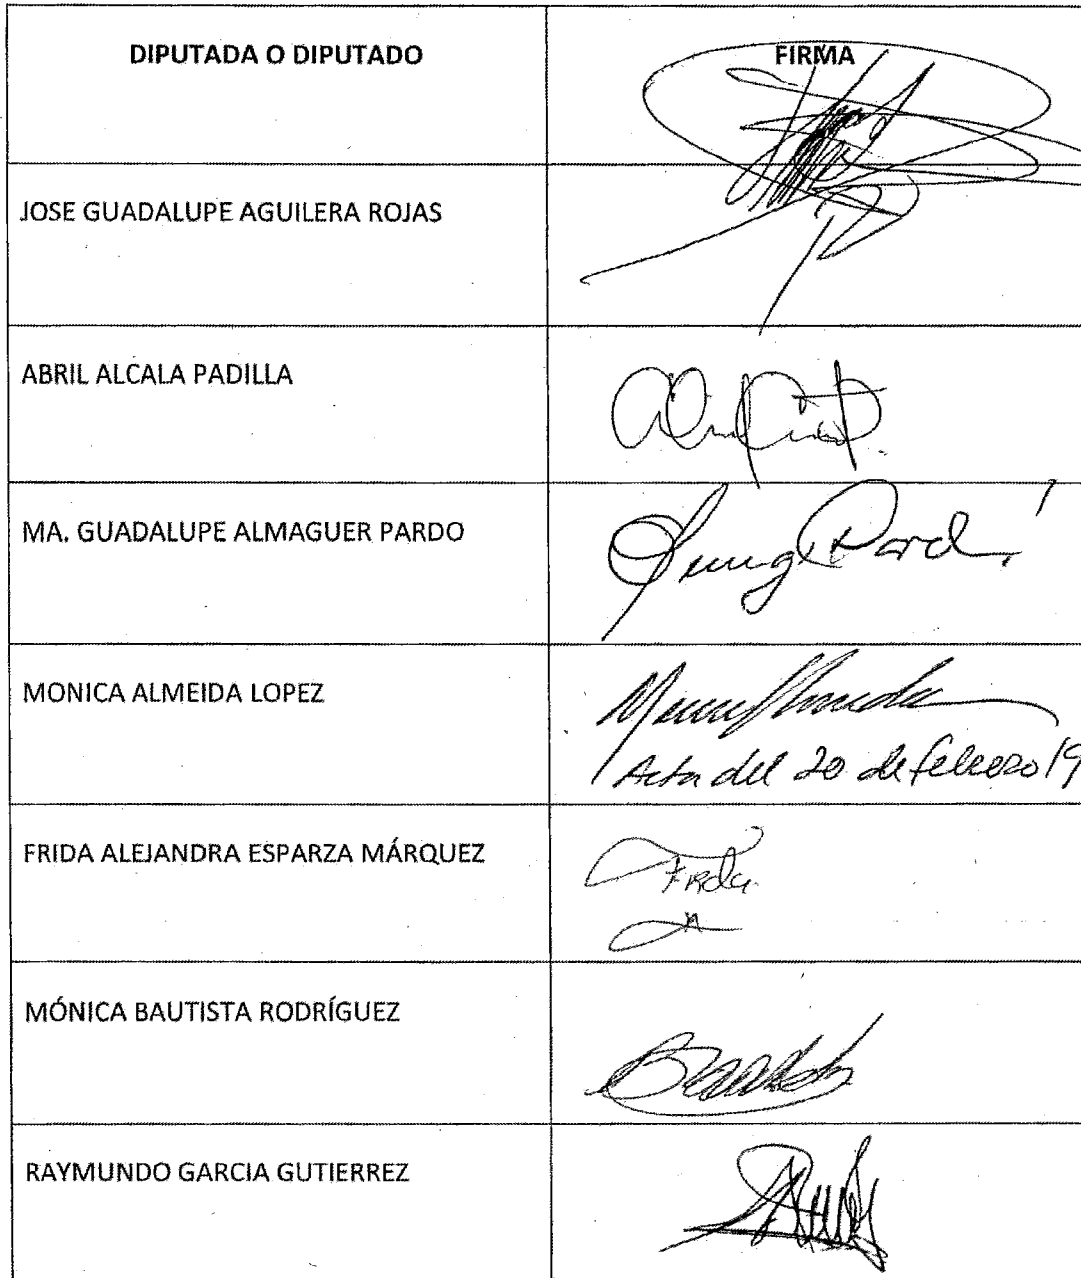 DIPUTADA O DIPUTADO FIRMA
JOSE GUADALUPE AGUILERA ROJAS
ABRIL ALCALA PADILLA
MA. GUADALUPE ALMAGUER PARDO
MONICA ALMEIDA LOPEZ
Acta del 20 de febrero 19
FRIDA ALEJANDRA ESPARZA MÁRQUEZ
Frida
MÓNICA BAUTISTA RODRÍGUEZ
RAYMUNDO GARCIA GUTIERREZ